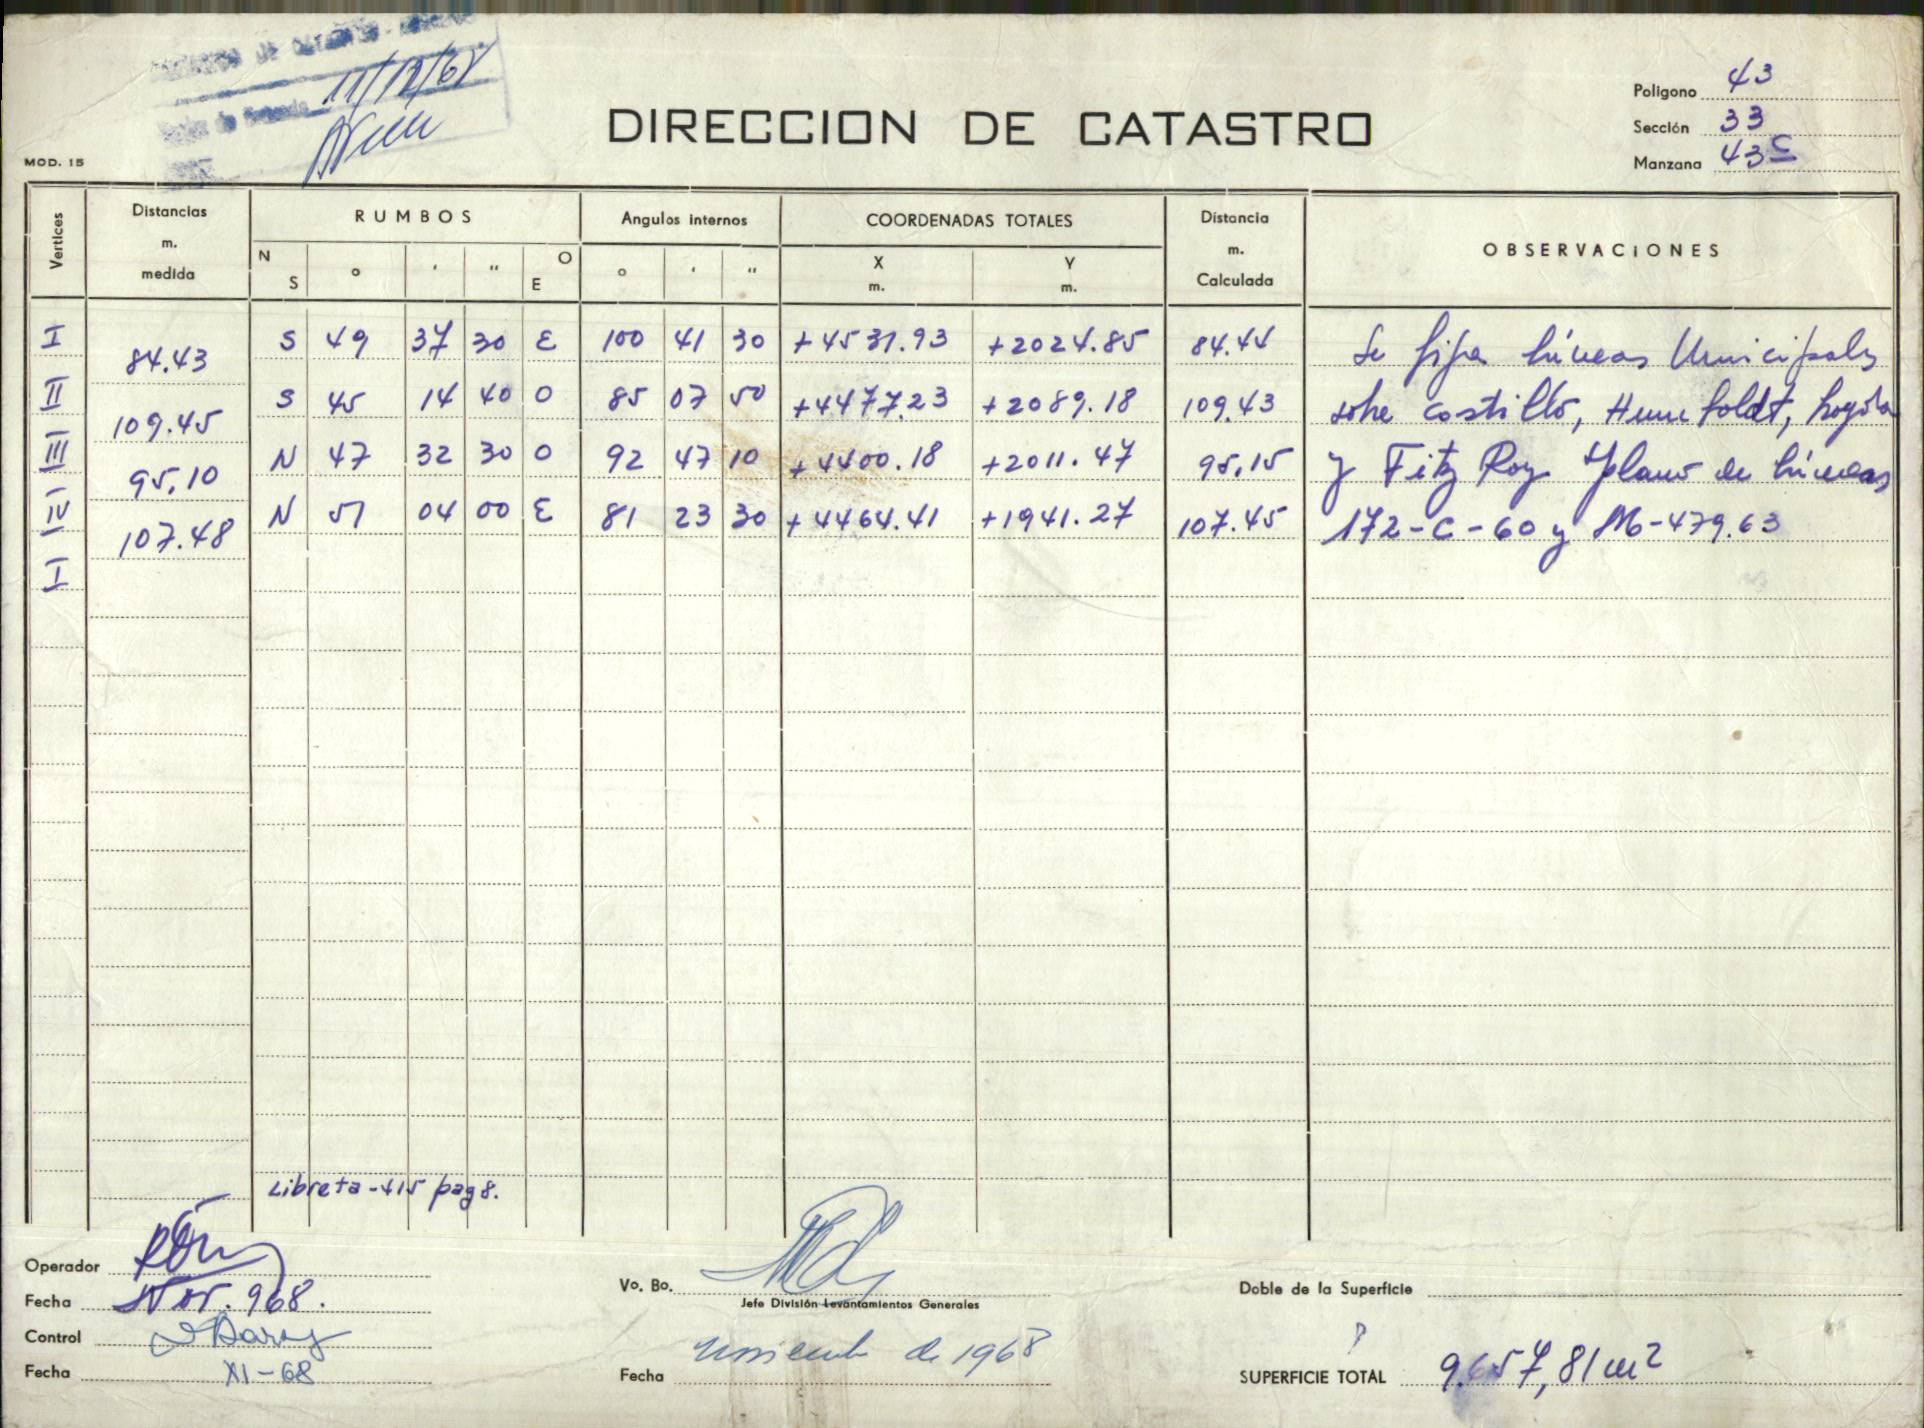 DIRECCION DE CATASTRO - 
11/12/68
DIRECCION DE CATASTRO
Poligono 43
Sección 33
Manzana 43 C
MOD. 15
Vertices
Distancias m. medida
RUMBOS
N S ° ' " O E
Angulos internos
° ' "
COORDENADAS TOTALES
X m.
Y m.
Distancia m. Calculada
OBSERVACIONES
I S 49 37 30 E 100 41 30 +4531.93 +2024.85 84.44 Se fija líneas Municipales
84.43
II S 45 14 40 O 85 07 50 +4477.23 +2089.18 109.43 sobre Castillo, Humboldt,
109.45
III N 47 32 30 O 92 47 10 +4400.18 +2011.47 95.15 y Fitz Roy plano de líneas
95.10
IV N 51 04 00 E 81 23 30 +4464.41 +1941.27 107.45 172-C-60 y M-479.63
107.48
I
Libreta-415 pag 8.
Operador
Fecha Nov. 968.
Control
Fecha XI-68
Vo. Bo.
Jefe División Levantamientos Generales
Fecha Noviembre de 1968
Doble de la Superficie
SUPERFICIE TOTAL 9.657,81 m2